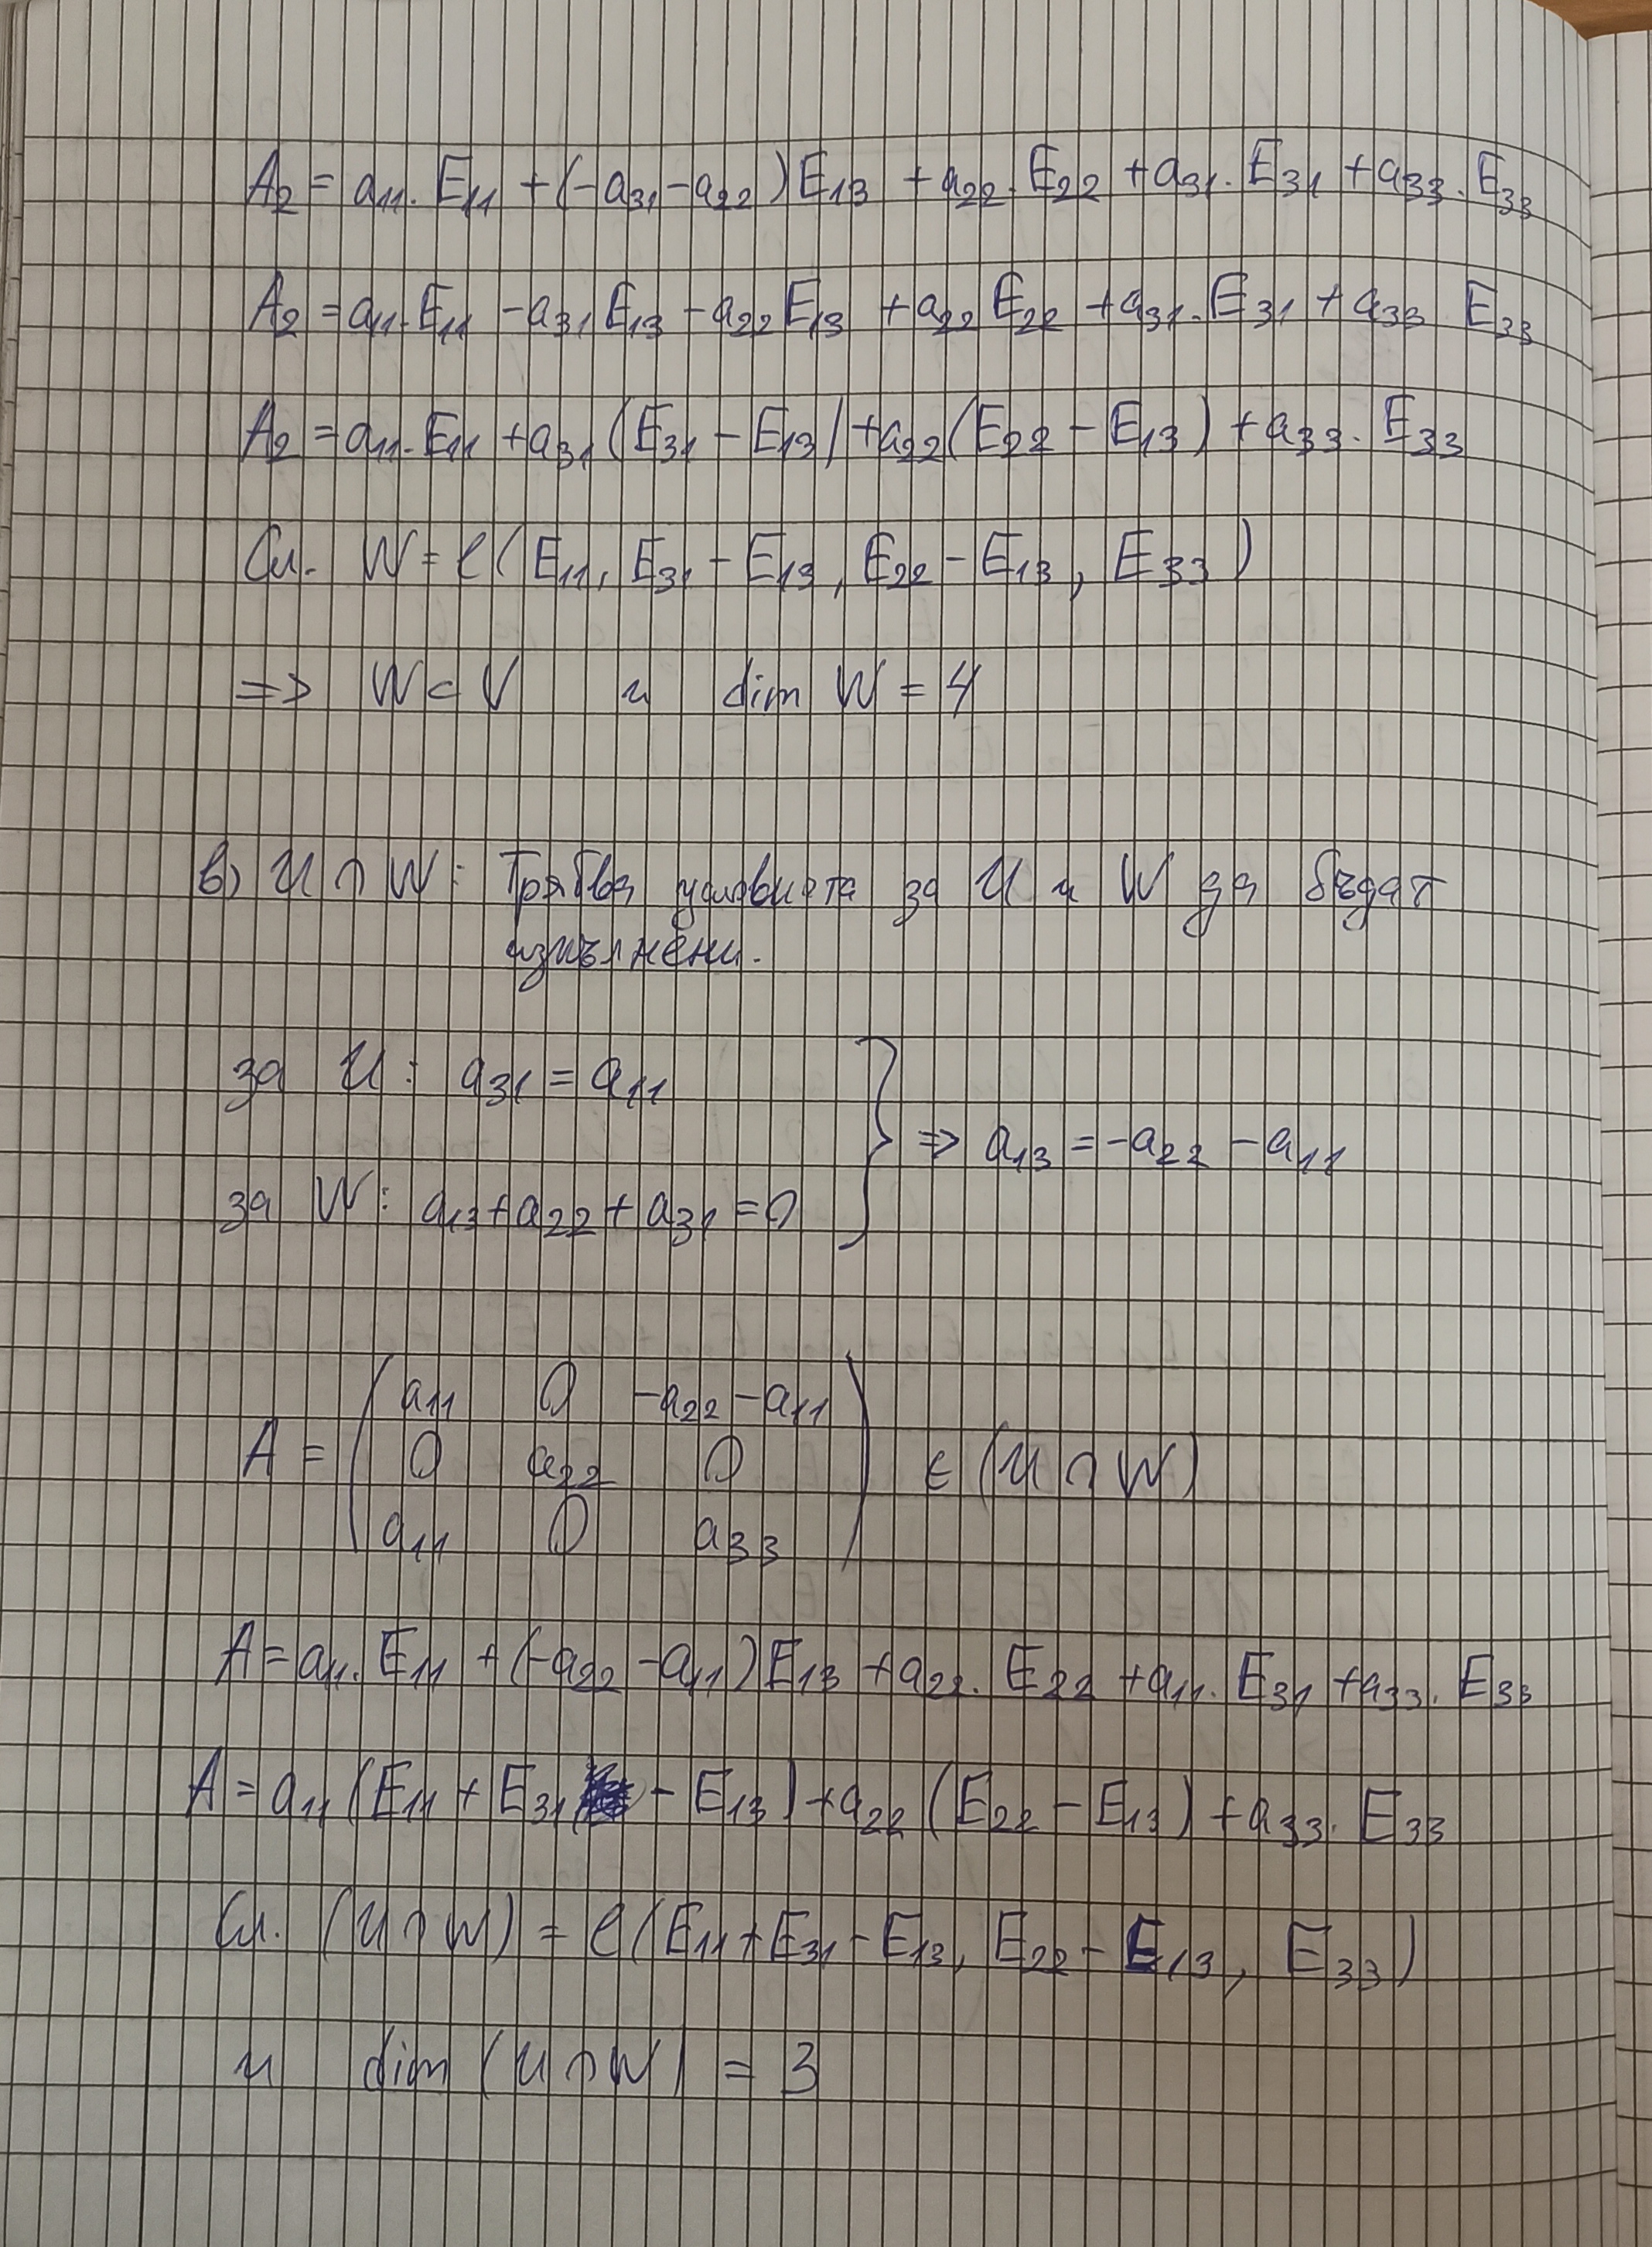 A₂ = a₁₁. E₁₁ + (-a₃₁ - a₂₂) E₁₃ + a₂₂. E₂₂ + a₃₁. E₃₁ + a₃₃. E₃₃
A₂ = a₁₁. E₁₁ - a₃₁ E₁₃ - a₂₂ E₁₃ + a₂₂ E₂₂ + a₃₁. E₃₁ + a₃₃ E₃₃
A₂ = a₁₁. E₁₁ + a₃₁ (E₃₁ - E₁₃) + a₂₂ (E₂₂ - E₁₃) + a₃₃. E₃₃
Сл. W = ℓ(E₁₁, E₃₁ - E₁₃, E₂₂ - E₁₃, E₃₃)
=> W < V и dim W = 4
в) U ∩ W: Трябва условията за U и W да бъдат
изпълнени.
за U: a₃₁ = a₁₁
=> a₁₃ = -a₂₂ - a₁₁
за W: a₁₃ + a₂₂ + a₃₁ = 0
a₁₁ 0 -a₂₂ - a₁₁
A = 0 a₂₂ 0 ∈ (U ∩ W)
a₁₁ 0 a₃₃
A = a₁₁. E₁₁ + (-a₂₂ - a₁₁) E₁₃ + a₂₂. E₂₂ + a₁₁. E₃₁ + a₃₃. E₃₃
A = a₁₁ (E₁₁ + E₃₁ - E₁₃) + a₂₂ (E₂₂ - E₁₃) + a₃₃. E₃₃
Сл. (U ∩ W) = ℓ(E₁₁ + E₃₁ - E₁₃, E₂₂ - E₁₃, E₃₃)
и dim (U ∩ W) = 3